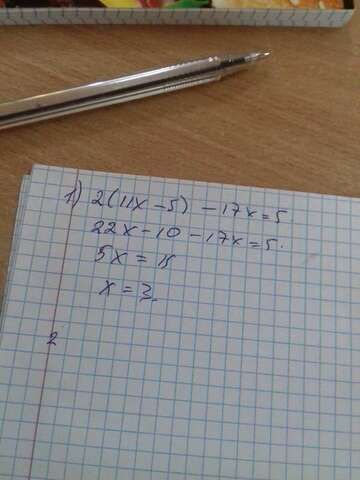 1) 2(11x-5) - 17x=5
22x-10-17x=5.
5x = 15
x = 3.
2